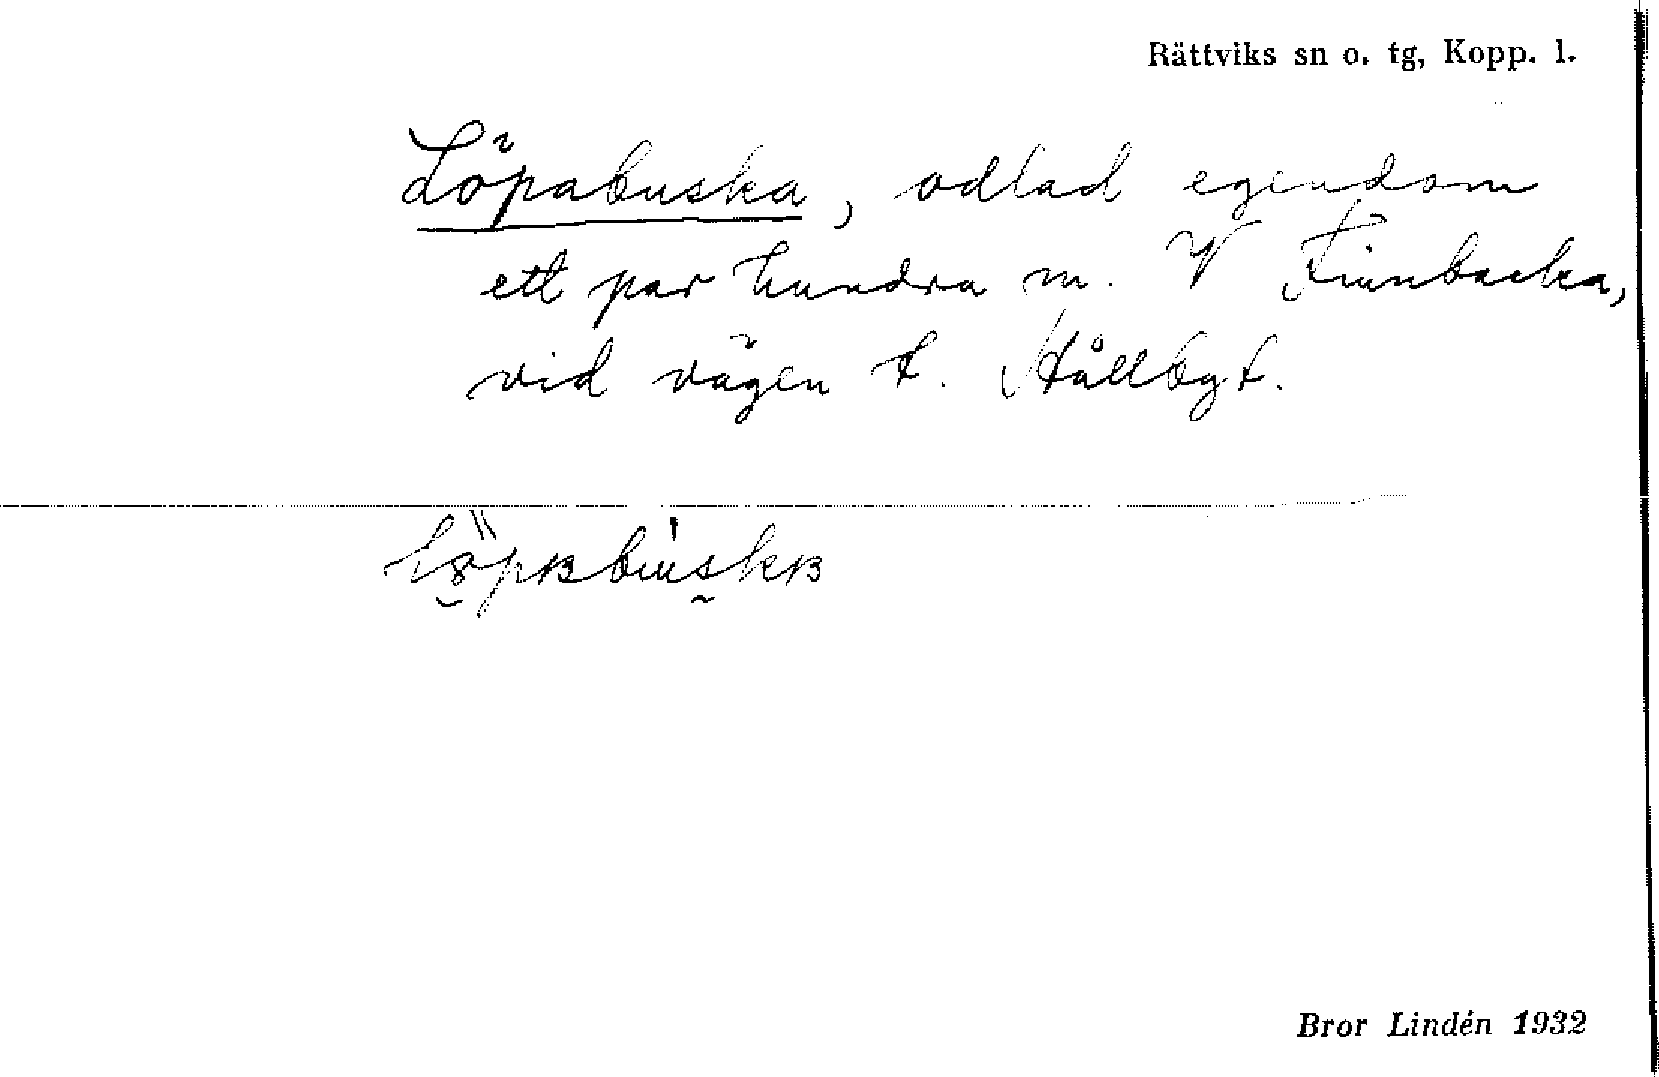 Rättviks sn o. tg, Kopp. l.
Löpabuska, odlad egendom
ett par hundra m. V Finnbacka,
vid vägen t. Stållbgt.
Bror Lindén 1932